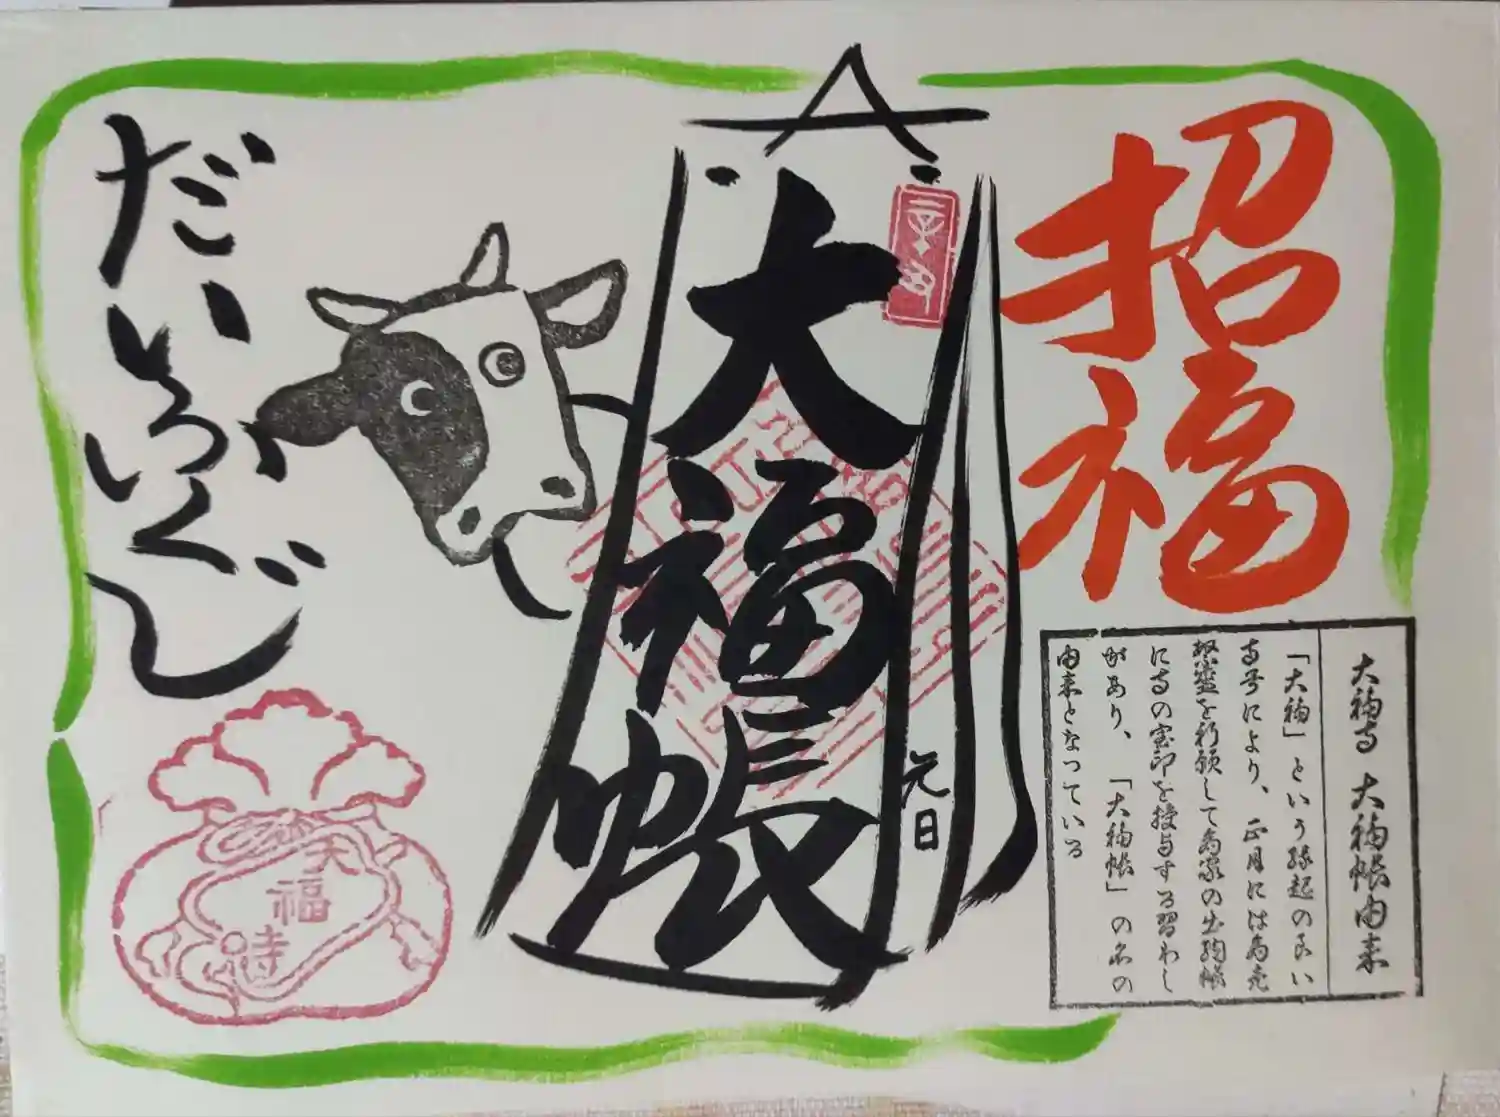 招福
大福寺 大福帳由来
「大福」という縁起の良い
寺号により、正月には商売
繁盛を祈願して商家の出納帳
に寺の宝印を授与する習わし
があり、「大福帳」の名の
由来となっている
大福帳
元日
だいふくじ
大福寺